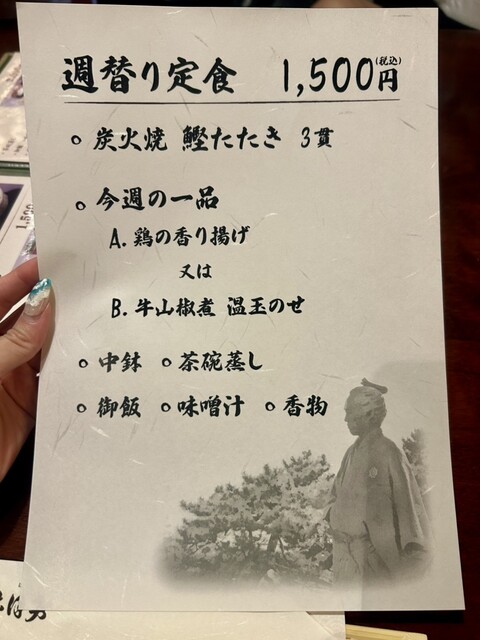 週替り定食 1,500円(税込)
○ 炭火焼 鰹たたき 3貫
○ 今週の一品
A. 鶏の香り揚げ
又は
B. 牛山椒煮 温玉のせ
○ 中鉢 ○ 茶碗蒸し
○ 御飯 ○ 味噌汁 ○ 香物
1,500